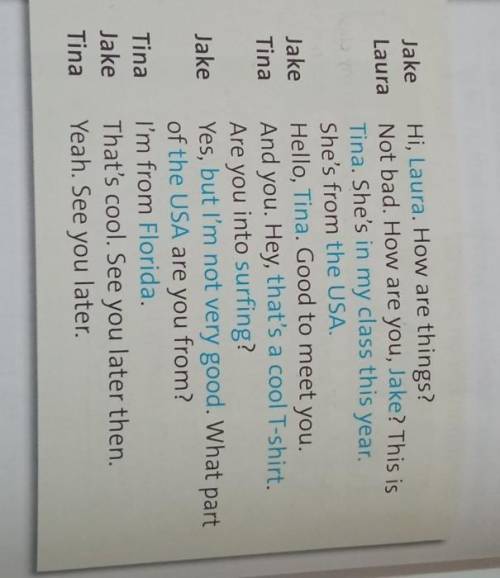 Jake Hi, Laura. How are things?
Laura Not bad. How are you, Jake? This is
Tina. She's in my class this year.
She's from the USA.
Jake Hello, Tina. Good to meet you.
Tina And you. Hey, that's a cool T-shirt.
Are you into surfing?
Jake Yes, but I'm not very good. What part
of the USA are you from?
Tina I'm from Florida.
Jake That's cool. See you later then.
Tina Yeah. See you later.